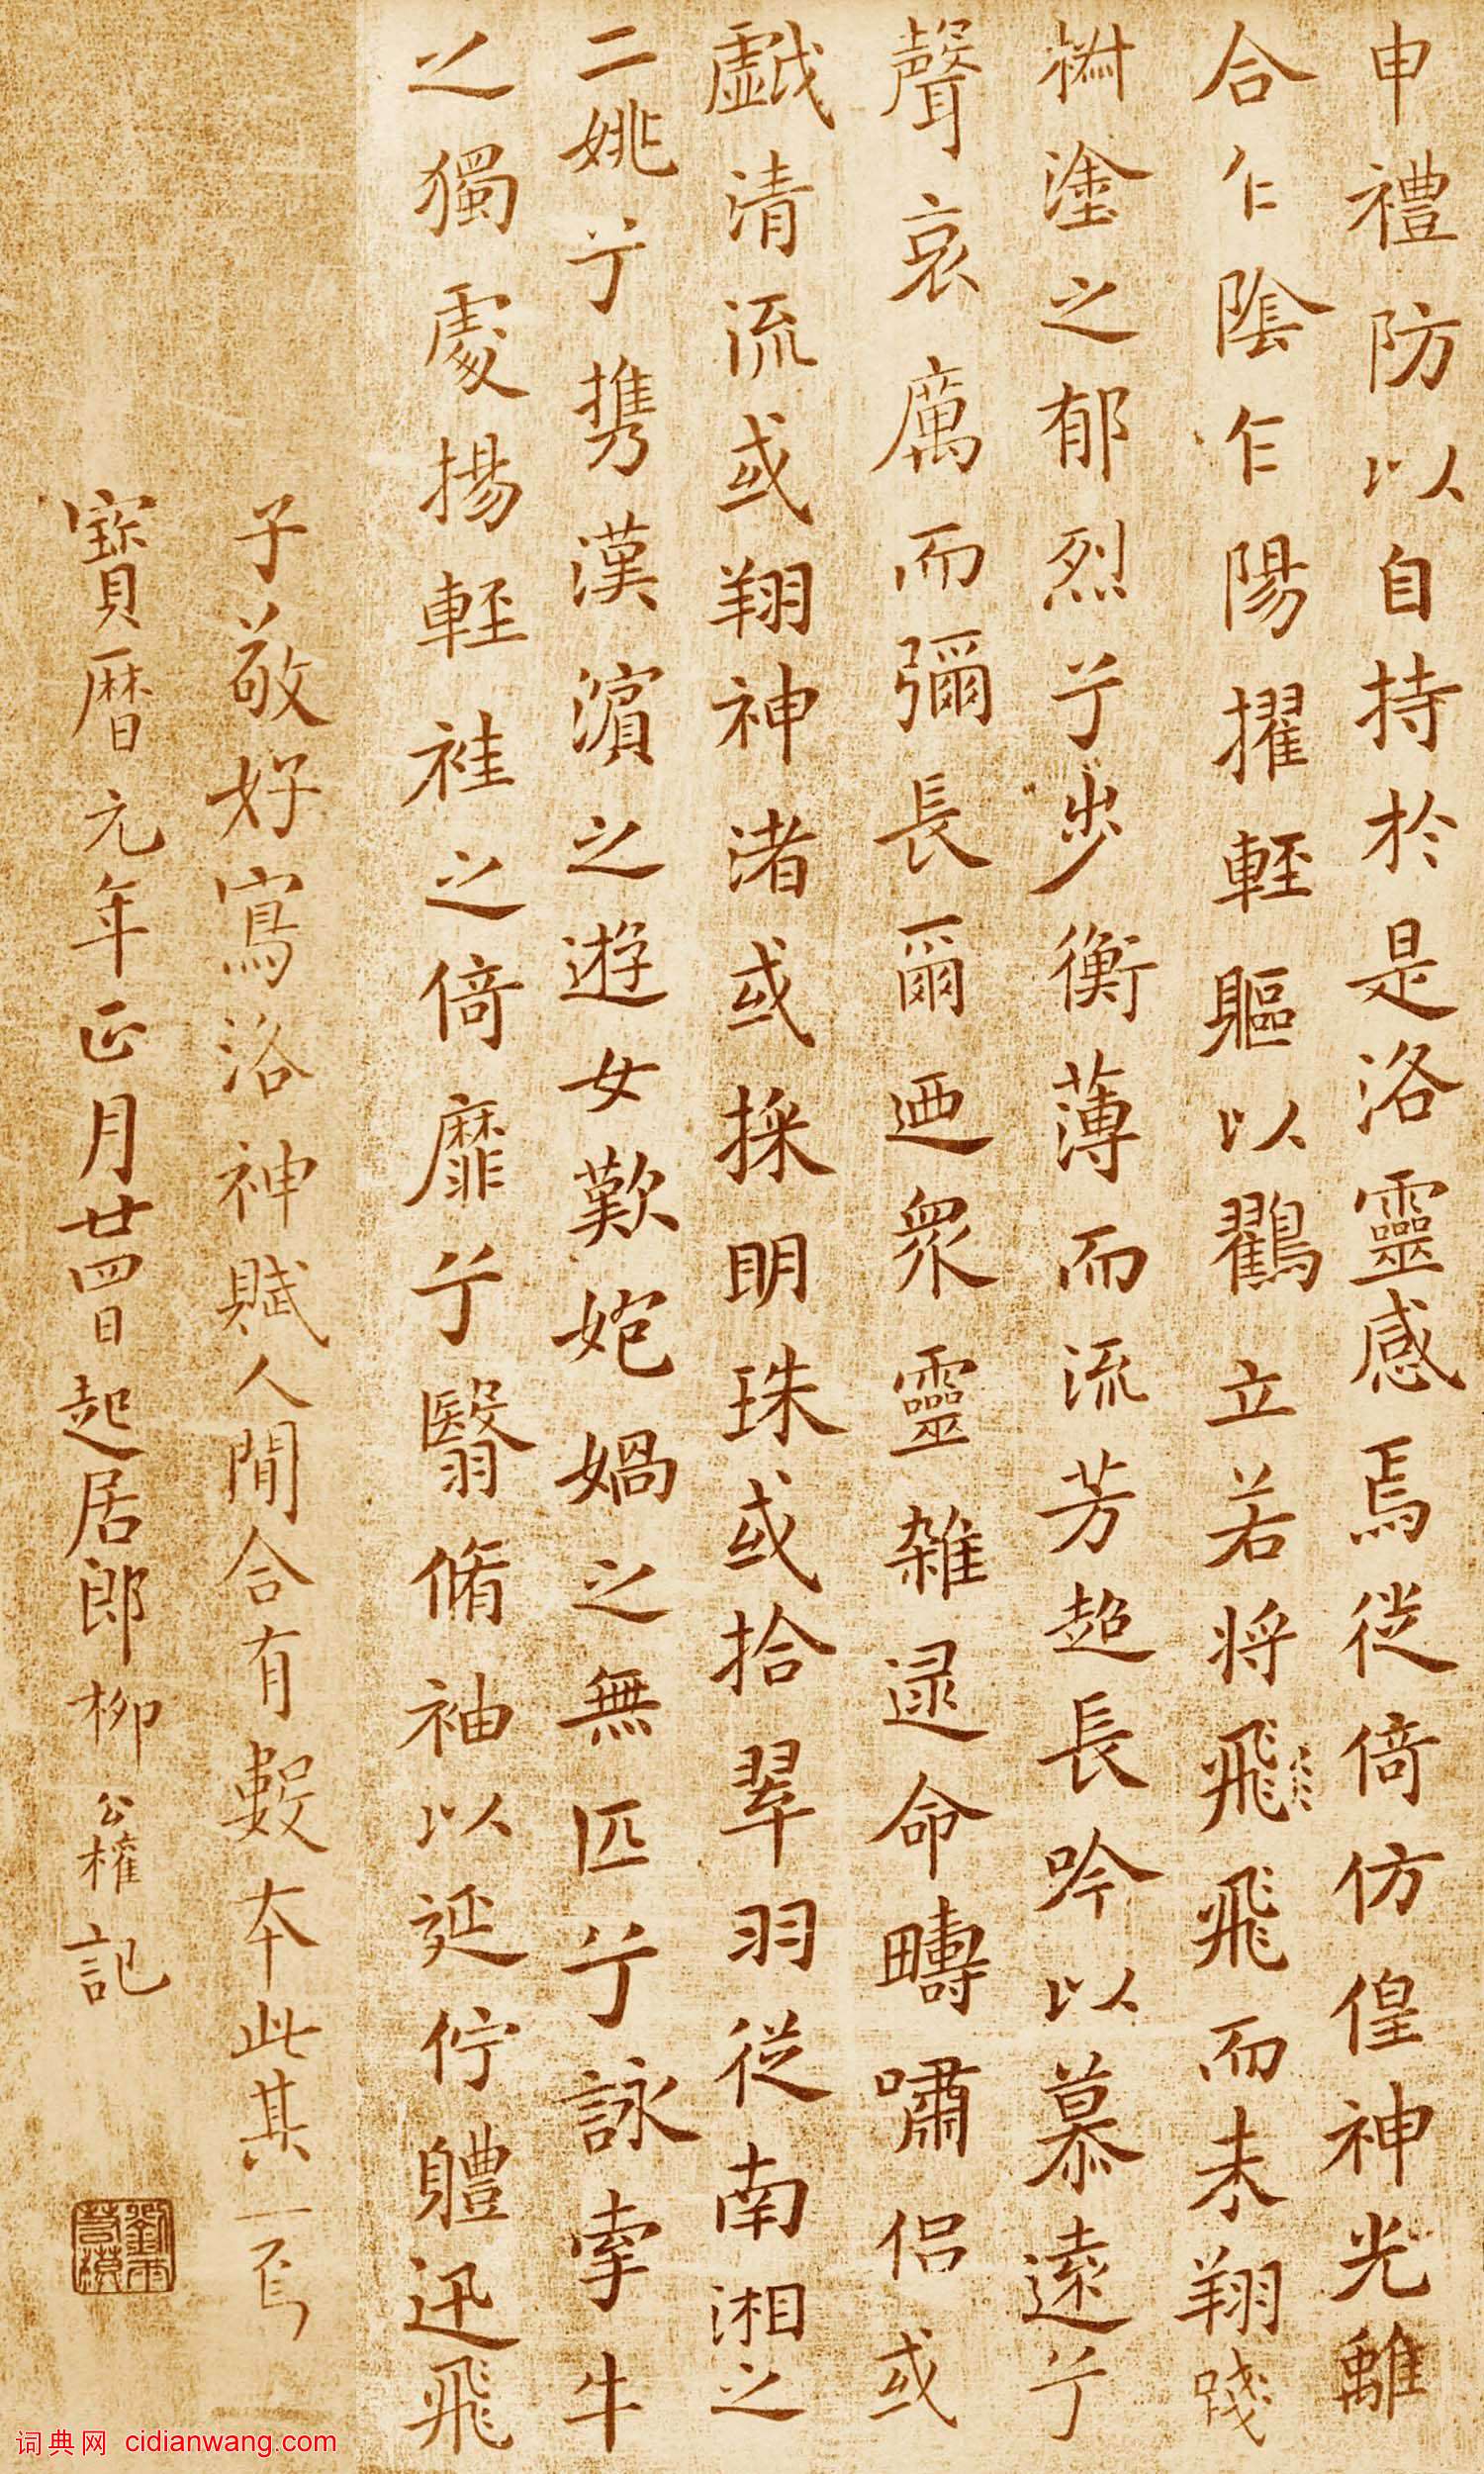 申禮防以自持於是洛靈感焉從倚仿偟神光離
合乍陰乍陽擢輕軀以鸖立若將飛飛而未翔踐
椒塗之郁烈兮步衡薄而流芳超長吟以慕遠兮
聲哀厲而彌長爾迺眾靈雜遝命疇嘯侶或
戲清流或翔神渚或採明珠或拾翠羽從南湘之
二姚兮携漢濱之遊女歎妑媧之無匹兮詠牽牛
之獨處揚輕袿之倚靡兮翳脩袖以延佇體迅飛
子敬好寫洛神賦人間合有數本此其一焉
寶曆元年正月廿四日起居郎柳公權記
词典网 cidianwang.com